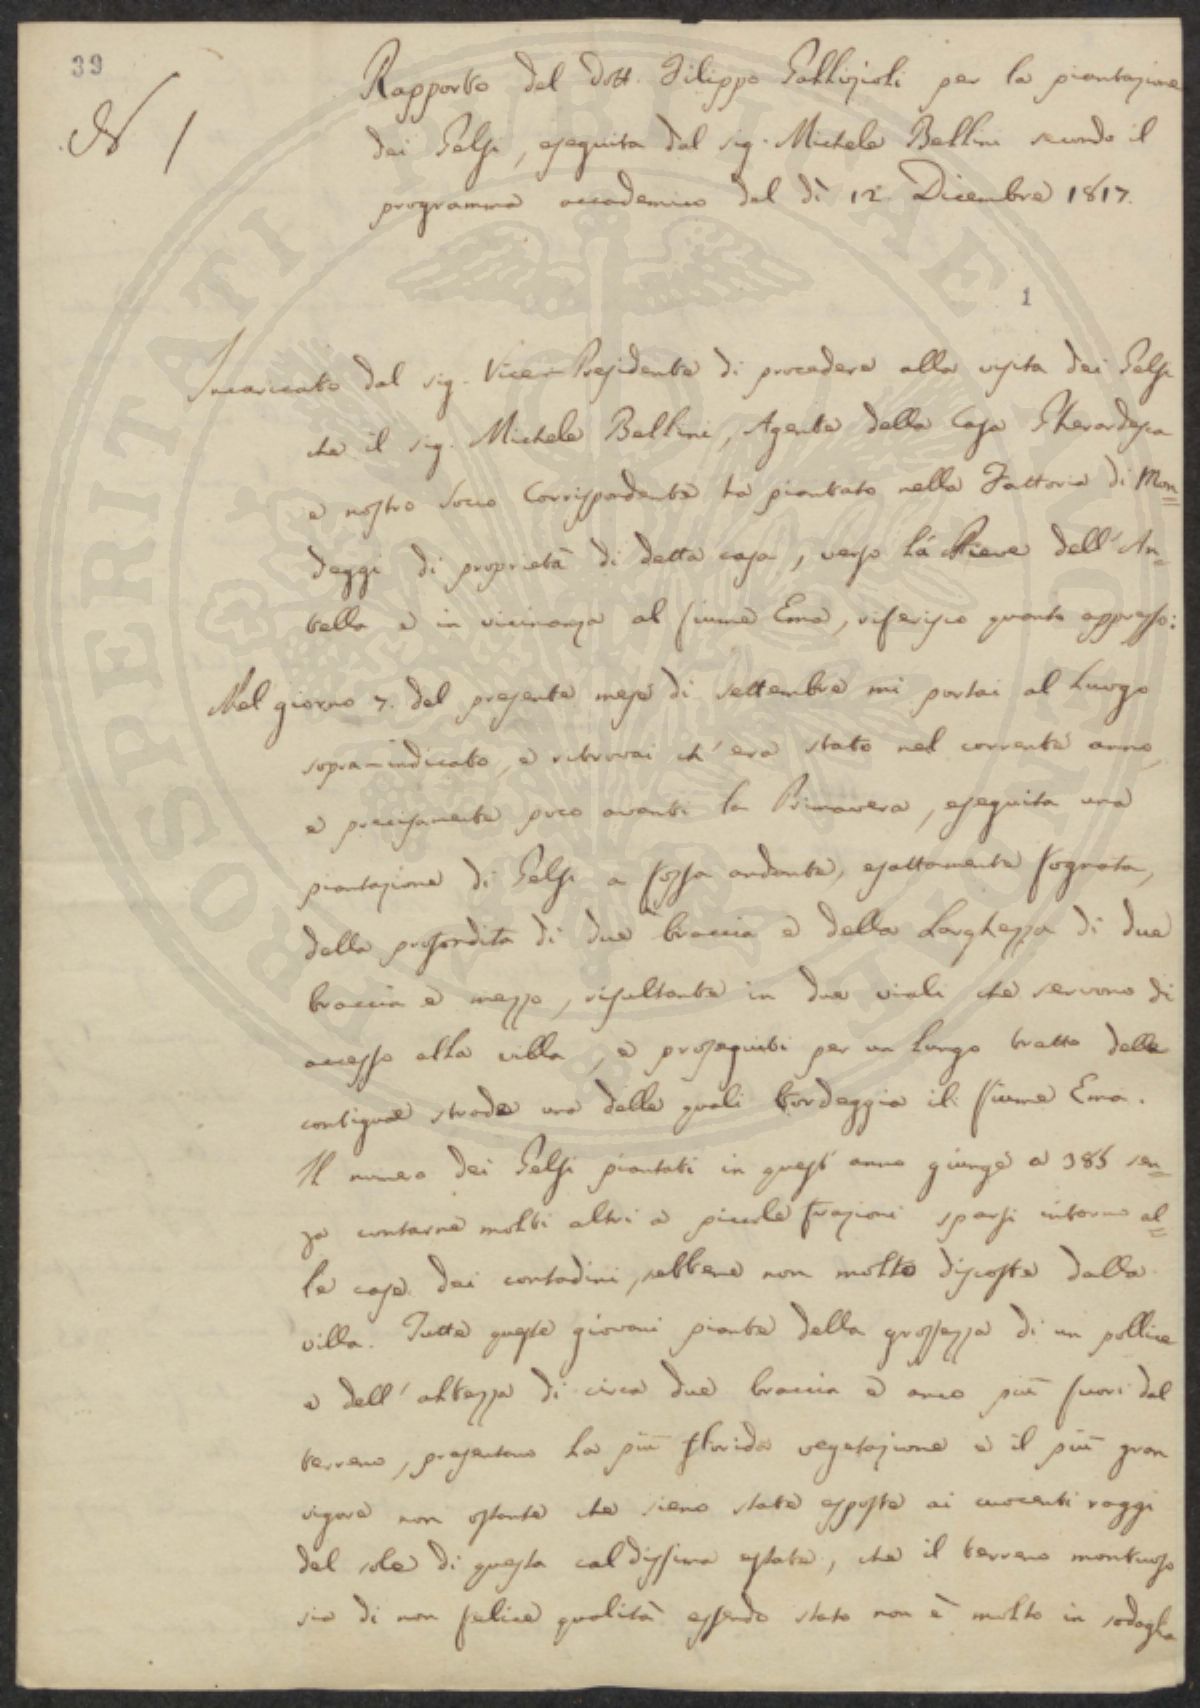 39
N 1
Rapporto del Dott. Filippo Gallizioli per la piantazione
dei Gelsi, eseguita dal sig. Michele Bellini secondo il
programma accademico del dì 12 Dicembre 1817.
1
Incaricato dal sig. Vice-Presidente di procedere alla visita dei Gelsi
che il sig. Michele Bellini, Agente della Casa Gherardesca
e nostro Socio Corrispondente ha piantato nella Fattoria di Mon=
deggi di proprietà di detta casa, verso la Pieve dell'An=
tella e in vicinanza al fiume Ema, riferisco quanto appresso:
Nel giorno 7. del presente mese di settembre mi portai al luogo
sopra-indicato, e ritrovai ch'era stato nel corrente anno,
e precisamente poco avanti la Primavera, eseguita una
piantazione di Gelsi a fossa andante, esattamente fognata,
della profondità di due braccia e della larghezza di due
braccia e mezzo, risultante in due viali che servono di
accesso alla villa, e proseguiti per un lungo tratto delle
contigue strade una delle quali bordeggia il fiume Ema.
Il numero dei Gelsi piantati in quest'anno giunge a 385 sen=
za contarne molti altri a piccole frazioni sparsi intorno al=
le case dei contadini, sebbene non molto discoste dalla
villa. Tutte queste giovani piante della grossezza di un pollice
e dell'altezza di circa due braccia e anco più fuori dal
terreno, presentano la più florida vegetazione e il più gran
vigore non ostante che sieno state esposte ai cuocenti raggi
del sole di questa caldissima estate, che il terreno montuoso
sia di non felice qualità essendo stato non è molto in sodaglia